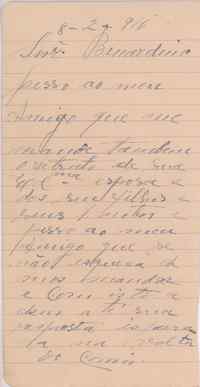 8-2-916
Snr. Bernardino
pesso ao meu
amigo que me
mande tambem
o retrato de sua
Exma esposa e
dos seus filhos e
pesso ao meu
amigo que se
não esqueça de
mos mandar
e com isto a
deus até sua
resposta
na volta
do Correio